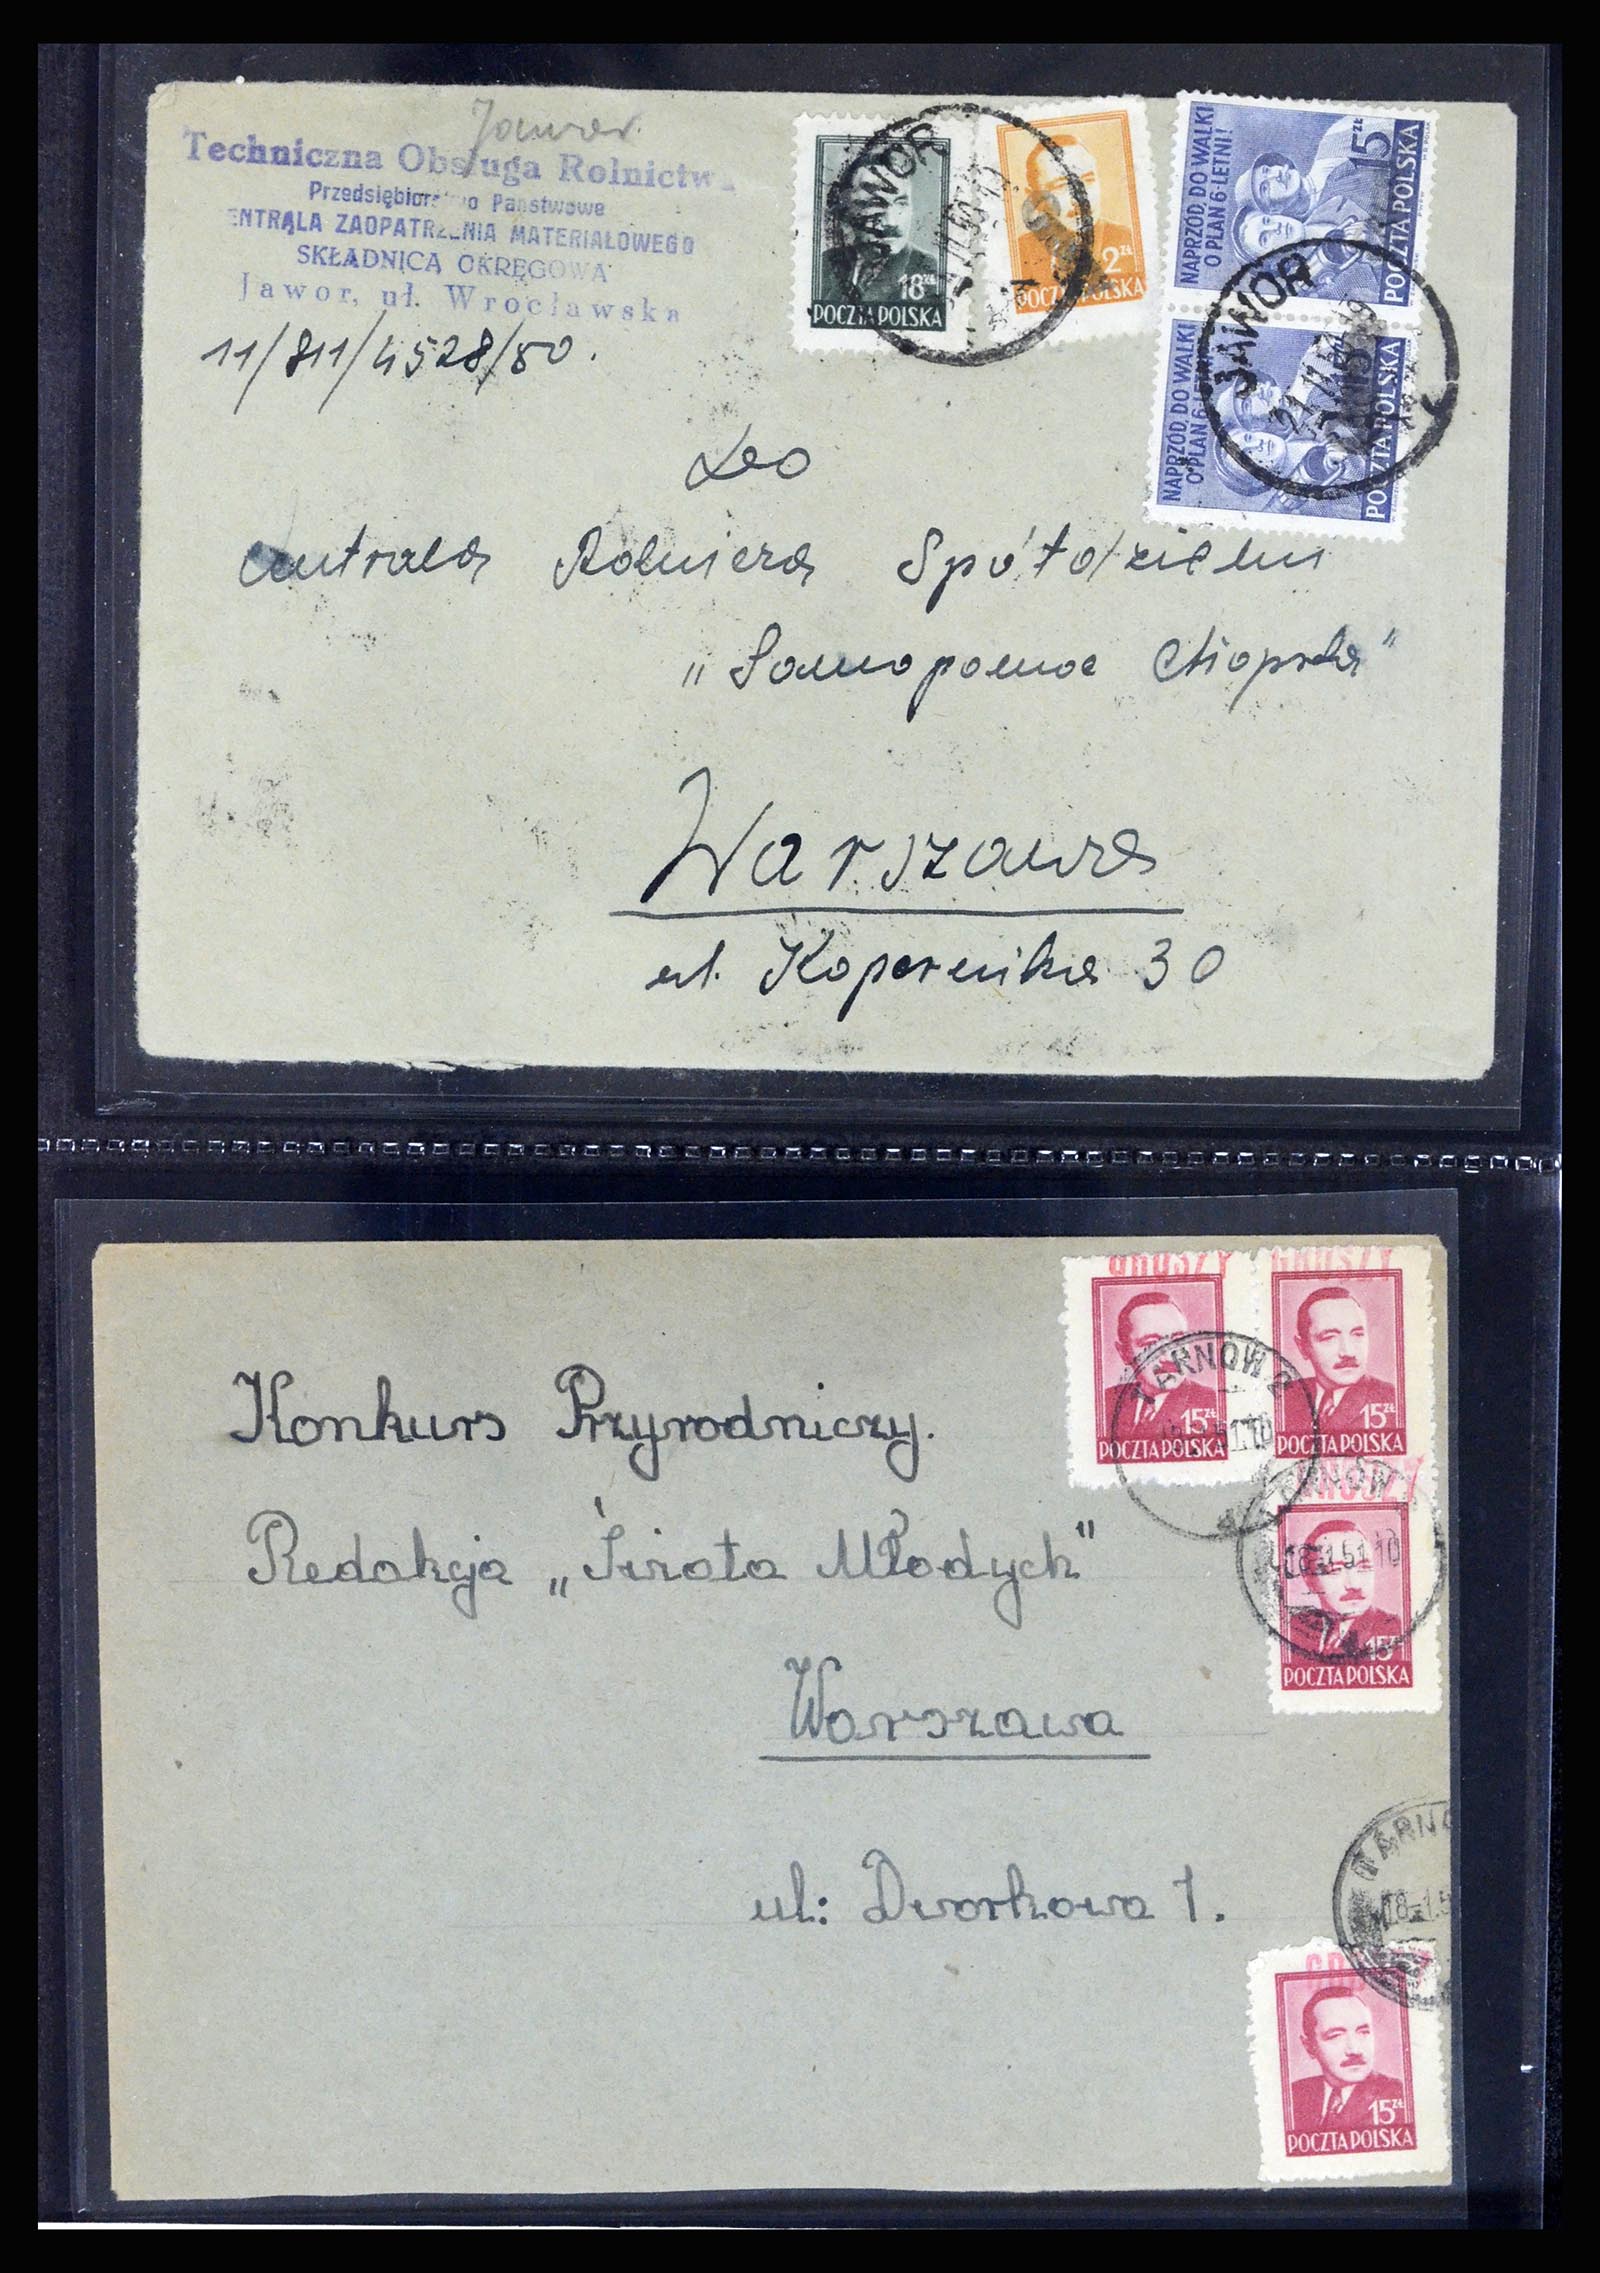 Jawor.
Techniczna Obsługa Rolnictwa
Przedsiębiorstwo Państwowe
ENTRALA ZAOPATRZENIA MATERIAŁOWEGO
SKŁADNICA OKRĘGOWA
Jawor, uł. Wrocławska
11/811/4528/50.
18 zł
POCZTA POLSKA
2 zł
POCZTA POLSKA
JAWOR
NAPRZÓD, DO WALKI
O PLAN 6-LETNI!
15 zł
POCZTA POLSKA
NAPRZÓD, DO WALKI
O PLAN 6-LETNI!
15
POCZTA POLSKA
JAWOR
Do
Centrala Rolnicza Spółdzielni
„Samopomoc Chłopska"
Warszawa
ul. Kopernika 30
GROSZY
15 zł
POCZTA POLSKA
GROSZY
15 zł
POCZTA POLSKA
TARNOW 2
GROSZY
15 zł
POCZTA POLSKA
TARNOW
18.-1.51.10
Konkurs Przyrodniczy.
Redakcja „Świata Młodych"
Warszawa
ul: Dworkowa 1.
TARNO
18.-1.5
GRO
15 zł
POCZTA POLSKA